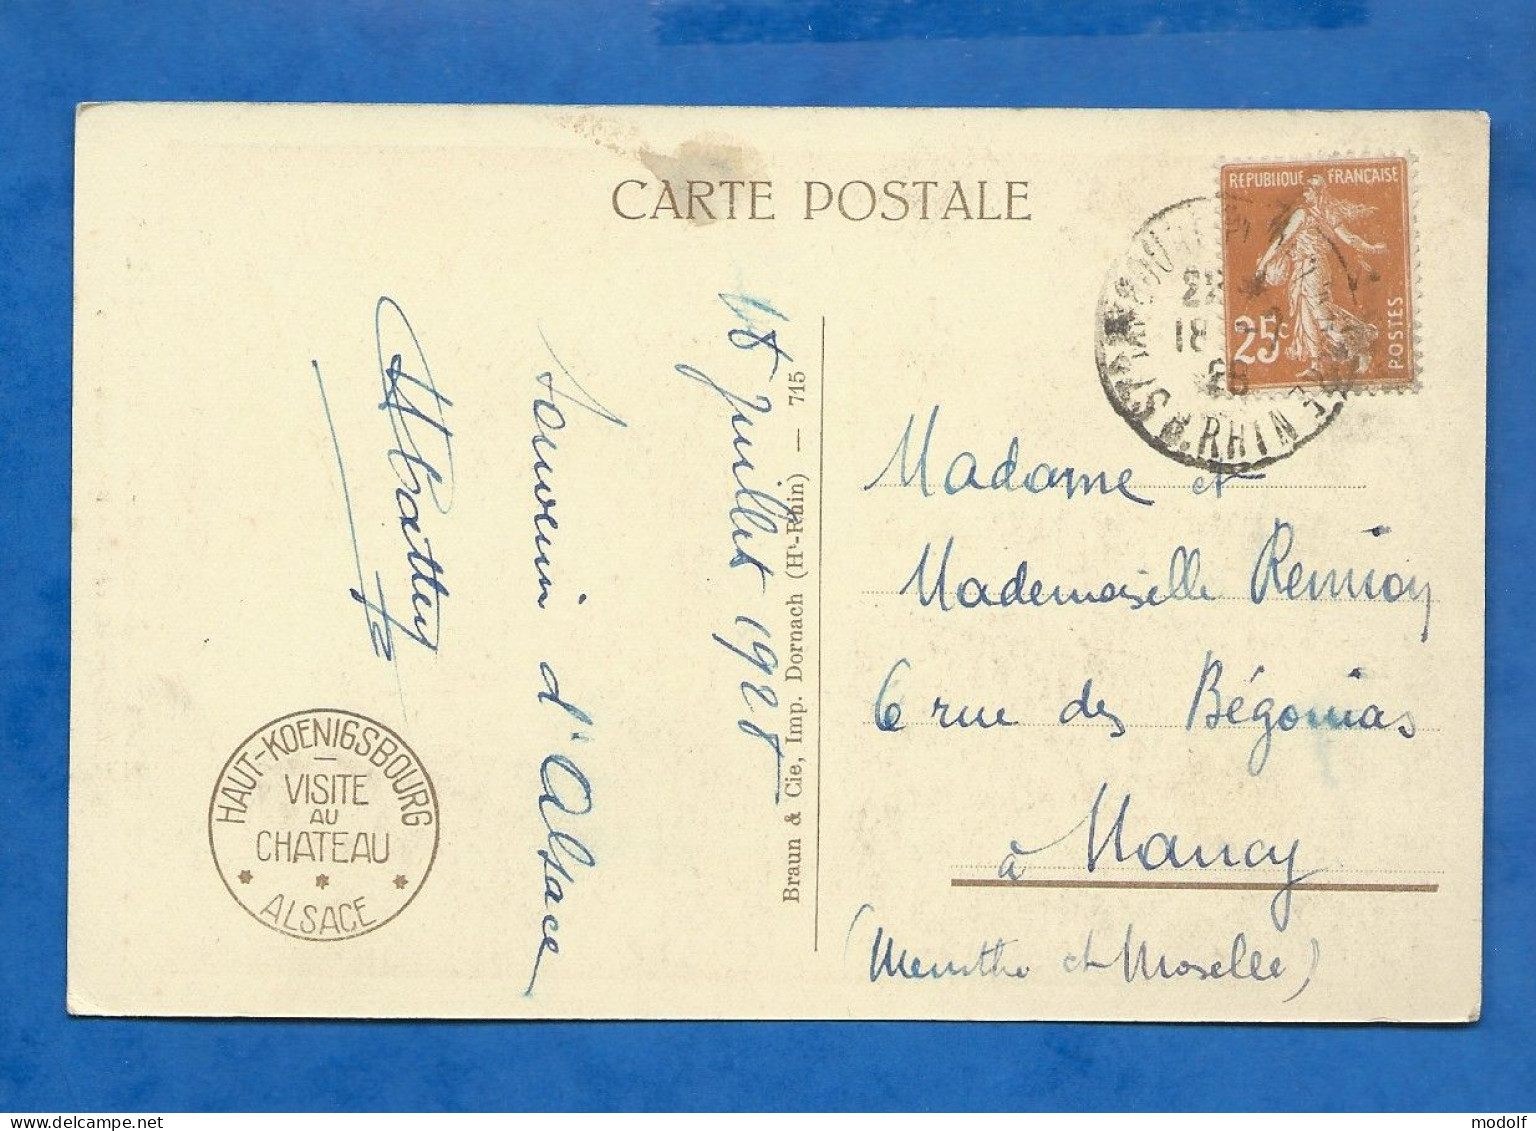 CARTE POSTALE
REPUBLIQUE FRANÇAISE
25c
POSTES
STRASBOURG
22
18
28
RHIN
18 Juillet 1928
Souvenir d'Alsace
Madame et
Mademoiselle Remion
6 rue des Bégonias
à Nancy
(Meurthe et Moselle)
Braun & Cie, Imp. Dornach (Ht-Rhin) — 715
HAUT-KOENIGSBOURG
VISITE
AU
CHATEAU
ALSACE
modolf